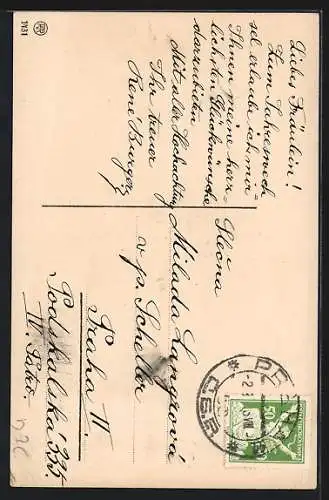 Liebes Fräulein!
Zum Jahreswech-
sel erlaube ich mir
Ihnen meine herz-
lichsten Glückwünsche
darzubieten
Mit aller Hochachtung
Ihr treuer
René Burger
Slečna
Milada Langrová
v. p. Schiller
Praha II.
Podskalská 335
IV.
1V31
50